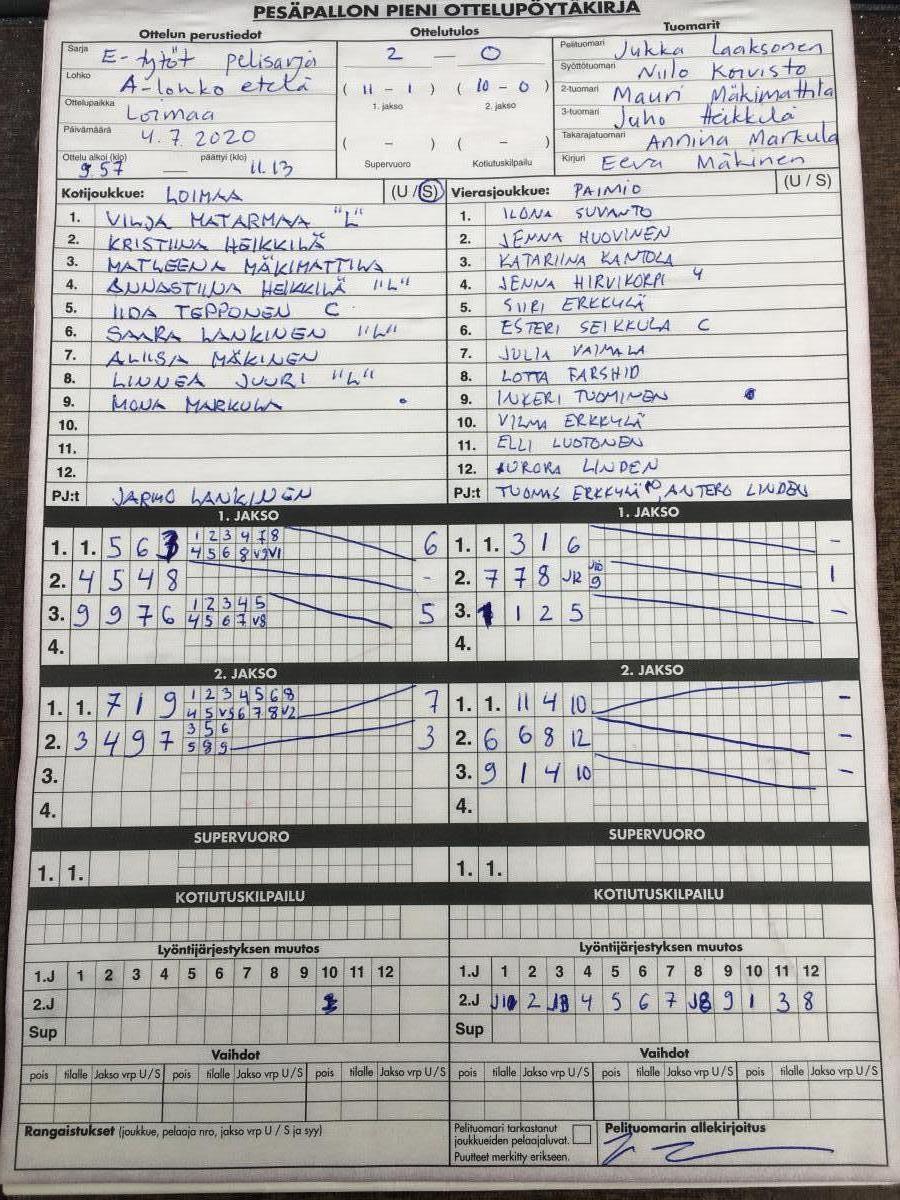 PESÄPALLON PIENI OTTELUPÖYTÄKIRJA
Ottelun perustiedot
Sarja E-tytöt pelisarja
Lohko A-lohko etelä
Ottelupaikka Loimaa
Päivämäärä 4.7.2020
Ottelu alkoi (klo) 9.57 — päättyi (klo) 11.13
Ottelutulos
2 — 0
( 11 - 1 ) ( 10 - 0 )
1. jakso 2. jakso
( - ) ( - )
Supervuoro Kotiutuskilpailu
Tuomarit
Pelituomari Jukka Laaksonen
Syöttötuomari Niilo Koivisto
2-tuomari Mauri Mäkimattila
3-tuomari Juho Heikkilä
Takarajatuomari Annina Markula
Kirjuri Eeva Mäkinen
Kotijoukkue: LOIMAA (U / S)
1. VILJA MATARMAA "L"
2. KRISTIINA HEIKKILÄ
3. MATLEENA MÄKIMATTILA
4. ANNASTIINA HEIKKILÄ "L"
5. IIDA TEPPONEN C
6. SAARA LANKINEN "L"
7. ALIISA MÄKINEN
8. LINNEA JUURI "L"
9. MONA MARKULA
10.
11.
12.
PJ:t JARMO LANKINEN
Vierasjoukkue: PAIMIO (U / S)
1. ILONA SUVANTO
2. JENNA HUOVINEN
3. KATARIINA KANTOLA
4. JENNA HIRVIKORPI 4
5. SIIRI ERKKYLÄ
6. ESTERI SEIKKULA C
7. JULIA VAIMALA
8. LOTTA FARSHID
9. INKERI TUOMINEN
10. VILMA ERKKYLÄ
11. ELLI LUOTONEN
12. AURORA LINDEN
PJ:t TUOMAS ERKKYLÄ, ANTERO LINDEN
1. JAKSO
1. 1. 5 6 3 1 2 3 4 7 8 6
4 5 6 8 V9 V1
2. 4 5 4 8 -
3. 9 9 7 6 1 2 3 4 5 5
4 5 6 7 V8
4.
1. JAKSO
1. 1. 3 1 6 -
2. 7 7 8 JR J10 1
9
3. 1 1 2 5 -
4.
2. JAKSO
1. 1. 7 1 9 1 2 3 4 5 6 8 7
4 5 V5 6 7 8 V2
2. 3 4 9 7 3 5 6 3
5 8 9
3.
4.
2. JAKSO
1. 1. 11 4 10 -
2. 6 6 8 12 -
3. 9 1 4 10 -
4.
SUPERVUORO
1. 1.
SUPERVUORO
1. 1.
KOTIUTUSKILPAILU
KOTIUTUSKILPAILU
Lyöntijärjestyksen muutos
1.J 1 2 3 4 5 6 7 8 9 10 11 12
2.J
Sup
Lyöntijärjestyksen muutos
1.J 1 2 3 4 5 6 7 8 9 10 11 12
2.J 2 4 5 6 7 9 1 3 8
Sup
Vaihdot
pois tilalle Jakso vrp U / S pois tilalle Jakso vrp U / S pois tilalle Jakso vrp U / S
Vaihdot
pois tilalle Jakso vrp U / S pois tilalle Jakso vrp U / S pois tilalle Jakso vrp U / S
Rangaistukset (joukkue, pelaaja nro, jakso vrp U / S ja syy)
Pelituomari tarkastanut
joukkueiden pelaajaluvat.
Puutteet merkitty erikseen.
Pelituomarin allekirjoitus